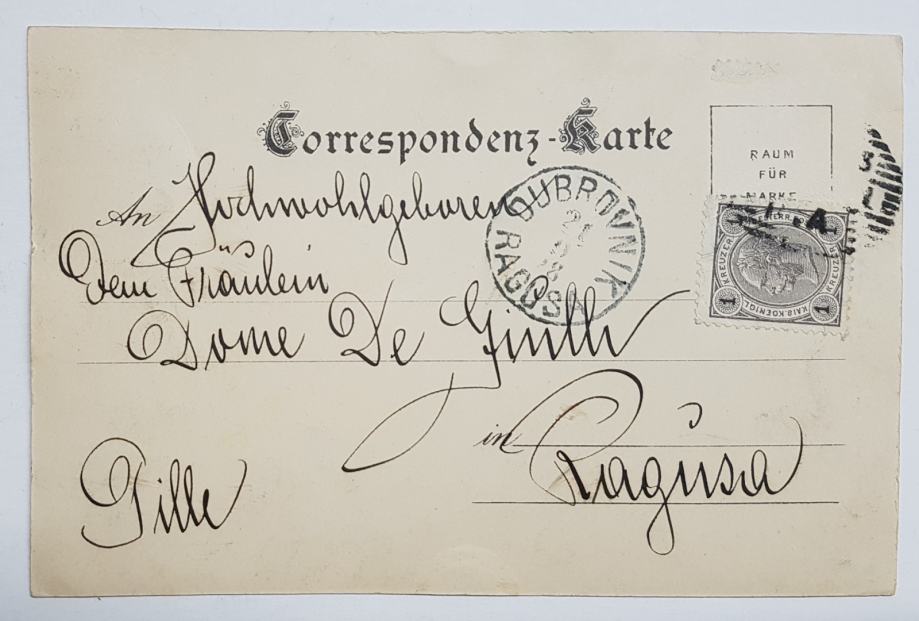 Correspondenz-Karte
RAUM
FÜR
MARKE
An Hochwohlgeboren
DUBROVNIK
RAGUSA
Dem Fräulein
1 KREUZER KREUZER 1
KAIS. KOENIGL.
Dome De Giulli
in Ragusa
Pille